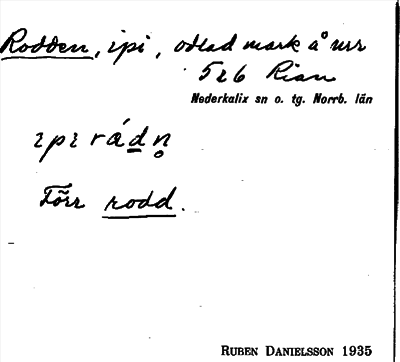 Rodden, ipi, odlad mark å nr
526 Rian
Nederkalix sn o. tg. Norrb. län
ipi rád̲n̥
Förr rodd.
RUBEN DANIELSSON 1935